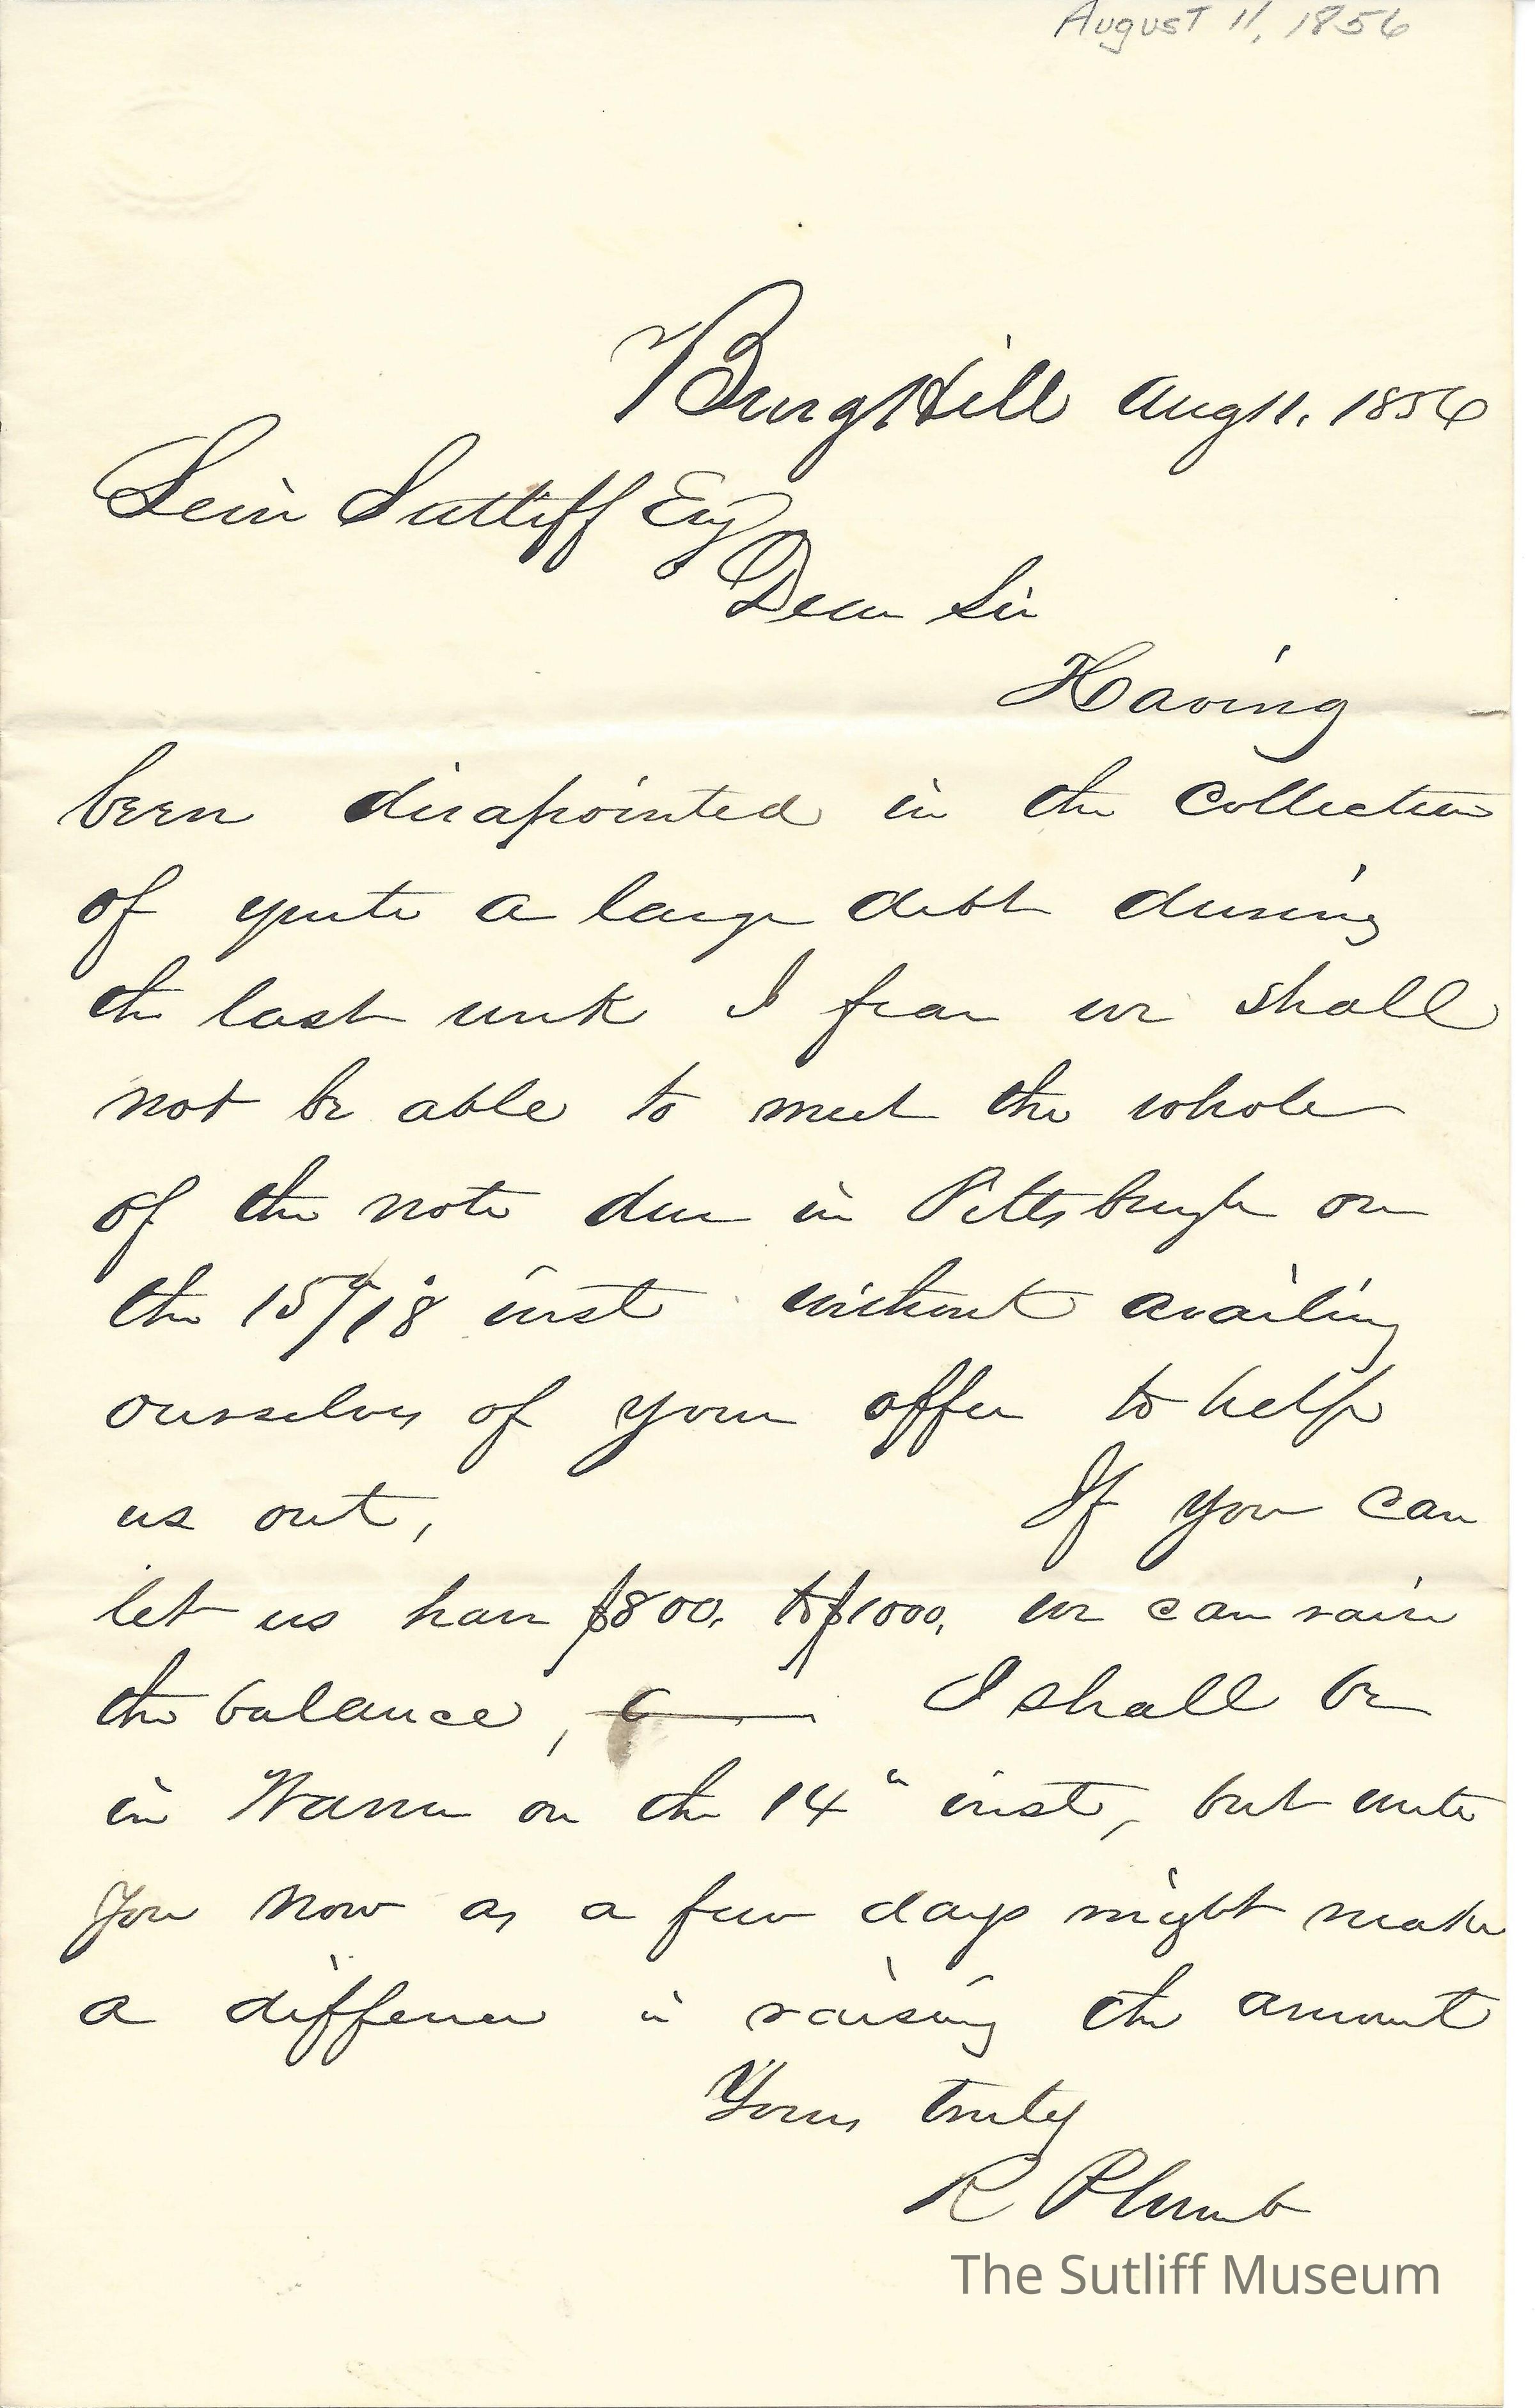 August 11, 1856
Burg Hill Aug 11, 1856
Levi Sutliff Esq
Dear Sir
Having
been disapointed in the collection
of quite a large debt during
the last week I fear we shall
not be able to meet the whole
of the note due in Pittsburgh on
the 15/18 inst without availing
ourselves of your offer to help
us out, If you can
let us have $800. to $1000, we can raise
the balance, I shall be
in Warren on the 14" inst, but write
you now as a few days might make
a difference in raising the amount
Yours truly
R Plumb
The Sutliff Museum